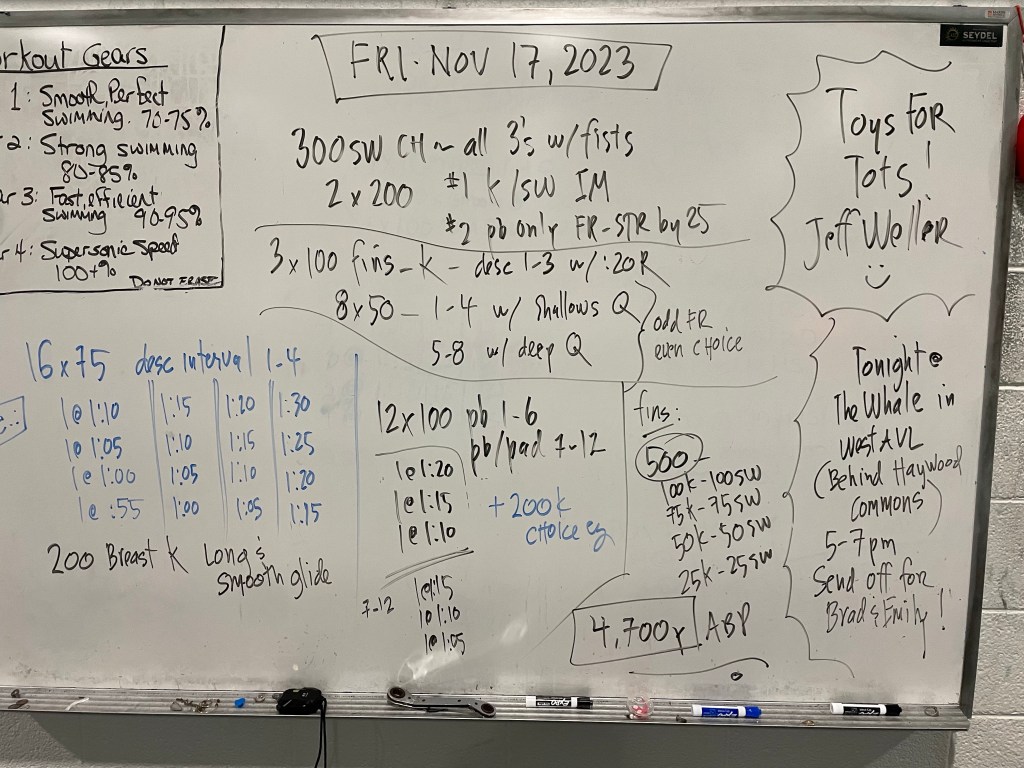 SEYDEL
orkout Gears
1: Smooth, Perfect
Swimming. 70-75%
2: Strong swimming
80-85%
ar 3: Fast, efficient
Swimming 90-95%
r 4: Supersonic Speed
100+%
DO NOT ERASE
FRI. NOV 17, 2023
300 SW CH ~ all 3's w/fists
2 x 200 #1 k/sw IM
#2 pb only FR-STR by 25
3 x 100 fins - k - desc 1-3 w/ :20R
8 x 50 - 1-4 w/ shallows Q
5-8 w/ deep Q
odd FR
even choice
16 x 75 desc interval 1-4
1@ 1:10 1:15 1:20 1:30
1@ 1:05 1:10 1:15 1:25
1@ 1:00 1:05 1:10 1:20
1@ :55 1:00 1:05 1:15
200 Breast K Long &
smooth glide
12 x 100 pb 1-6
pb/pad 7-12
1@ 1:20
1@ 1:15
1@ 1:10
+ 200 k
choice ez
7-12
1@ 1:15
1@ 1:10
1@ 1:05
fins:
500 -
100k-100sw
75k-75sw
50k-50sw
25k-25sw
4,700y ABP
Toys For
Tots!
Jeff Weller
Tonight @
The Whale in
West AVL
(Behind Haywood
Commons)
5-7pm
Send off for
Brad & Emily!